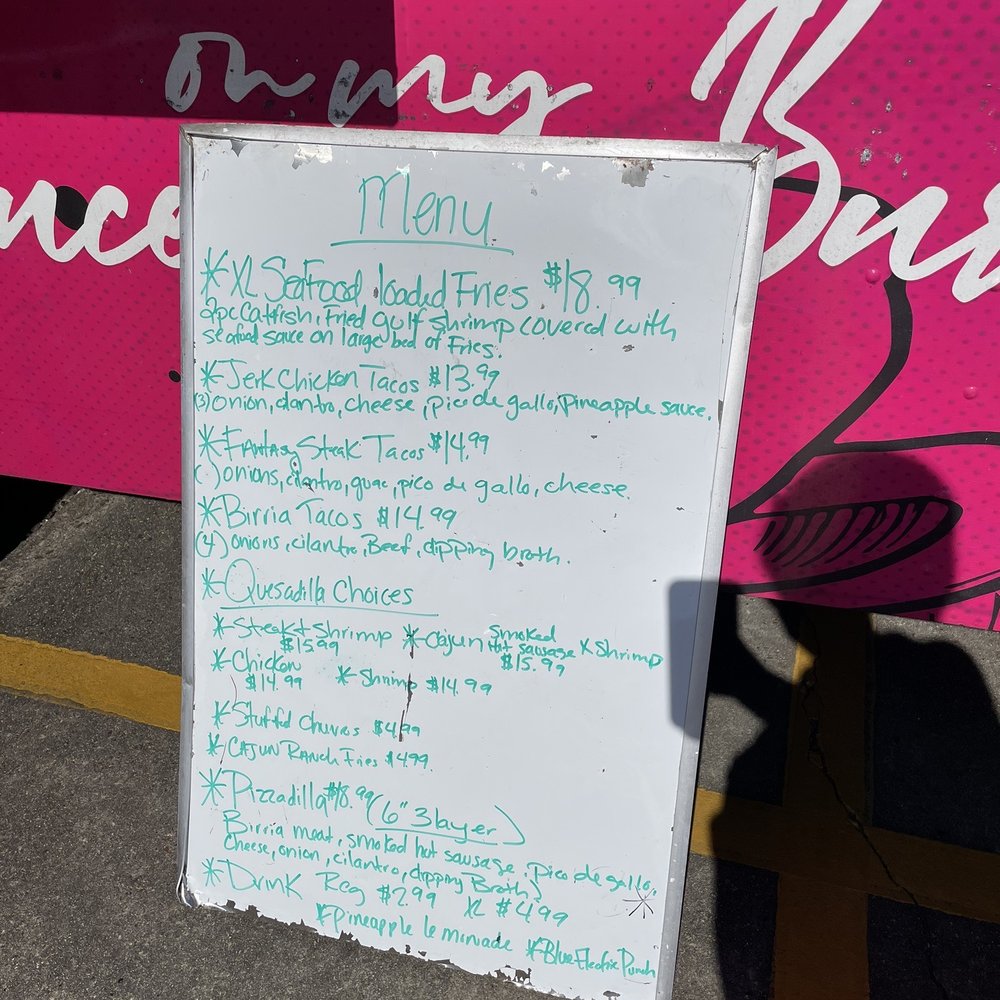 on my
nce
Menu
*XL Seafood loaded Fries $18.99
2pc Catfish, Fried gulf shrimp covered with
seafood sauce on large bed of Fries.
*Jerk Chicken Tacos $13.99
(3) onion, cilantro, cheese, pico de gallo, Pineapple sauce.
*Fantasy Steak Tacos $14.99
onions, cilantro, guac, pico de gallo, cheese.
*Birria Tacos $14.99
(4) onions, cilantro, Beef, dipping broth.
*Quesadilla Choices
*Steak + Shrimp $15.99 *Cajun Smoked Hot sausage x Shrimp $15.99
*Chicken $14.99 *Shrimp $14.99
*Stuffed Churros $4.99
*Cajun Ranch Fries $4.99
*Pizzadilla $18.99 (6" 3 layer)
Birria meat, smoked hot sausage, pico de gallo,
Cheese, onion, cilantro, dipping Broth)
*Drink Reg $2.99 XL $4.99
*Pineapple lemonade *Blue Electric Punch